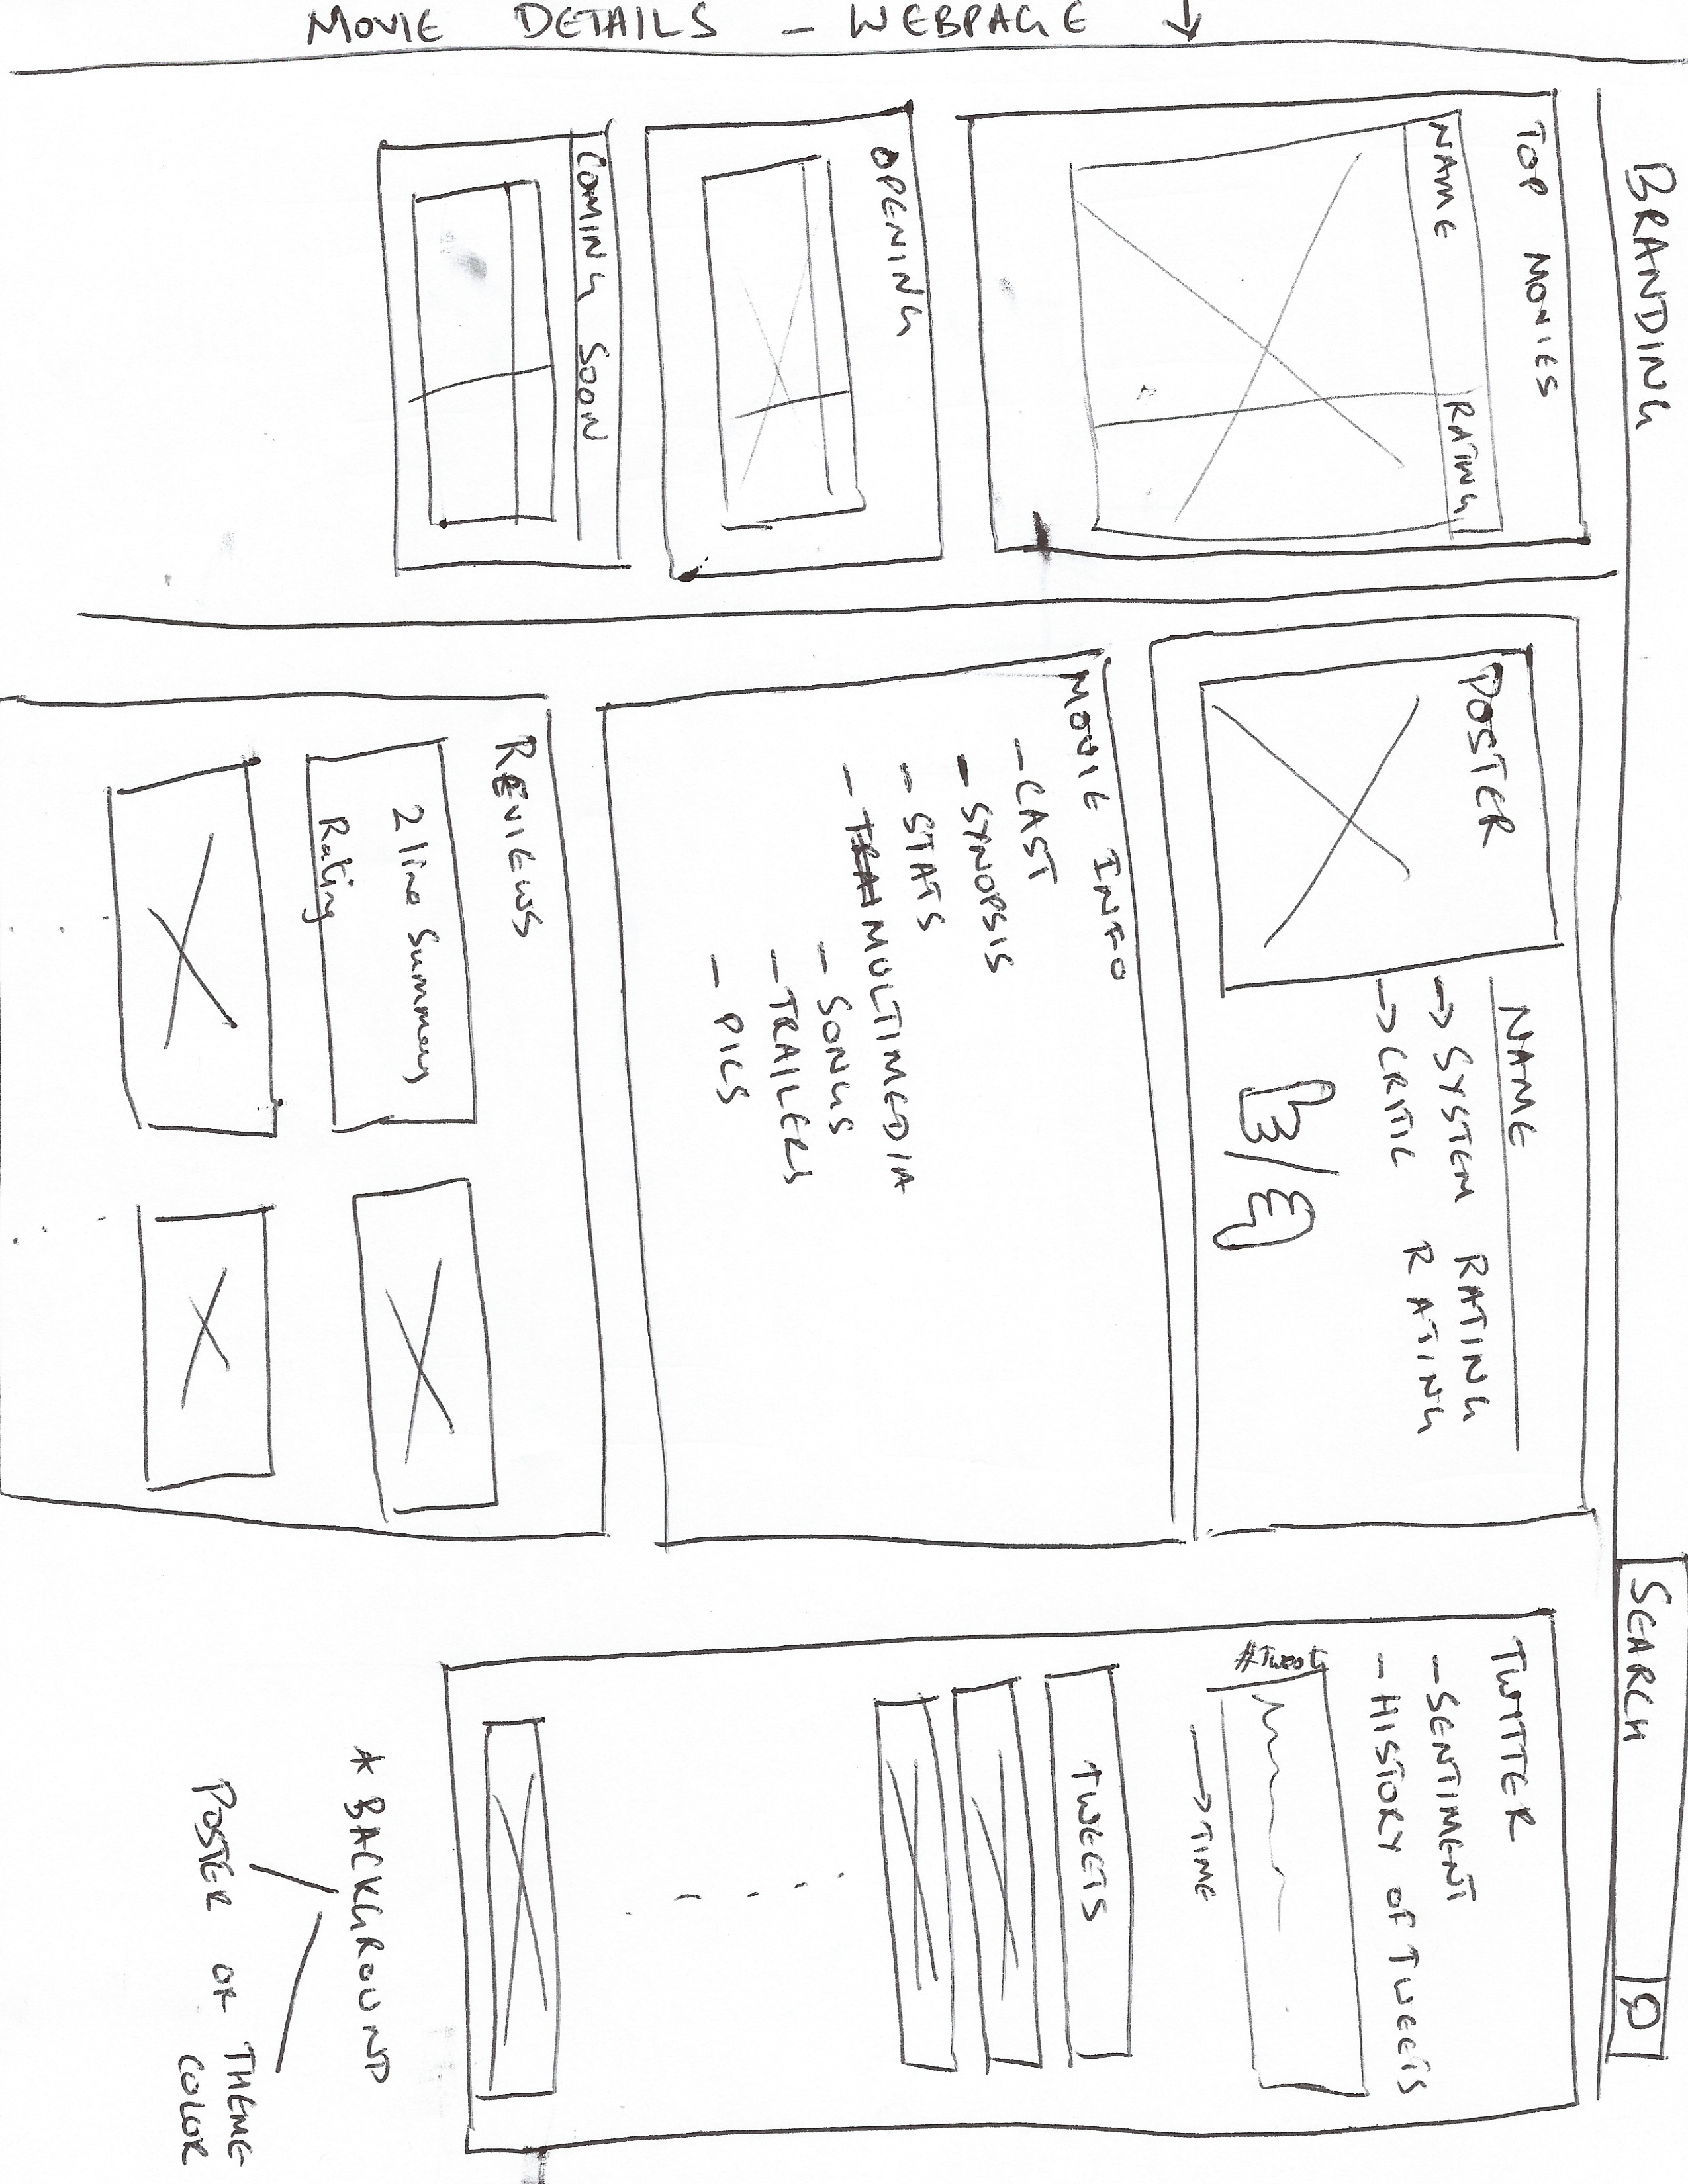 MOVIE DETAILS - WEBPAGE ↓
BRANDING
SEARCH
TOP MOVIES
NAME
RATING
OPENING
COMING SOON
POSTER
NAME
→ SYSTEM RATING
→ CRITIC RATING
MOVIE INFO
- CAST
- SYNOPSIS
- STATS
- MULTIMEDIA
- SONGS
- TRAILERS
- PICS
REVIEWS
2 line Summary
Rating
TWITTER
- SENTIMENT
- HISTORY OF TWEETS
#Tweets
→ TIME
TWEETS
* BACKGROUND
POSTER OR THEME
COLOR